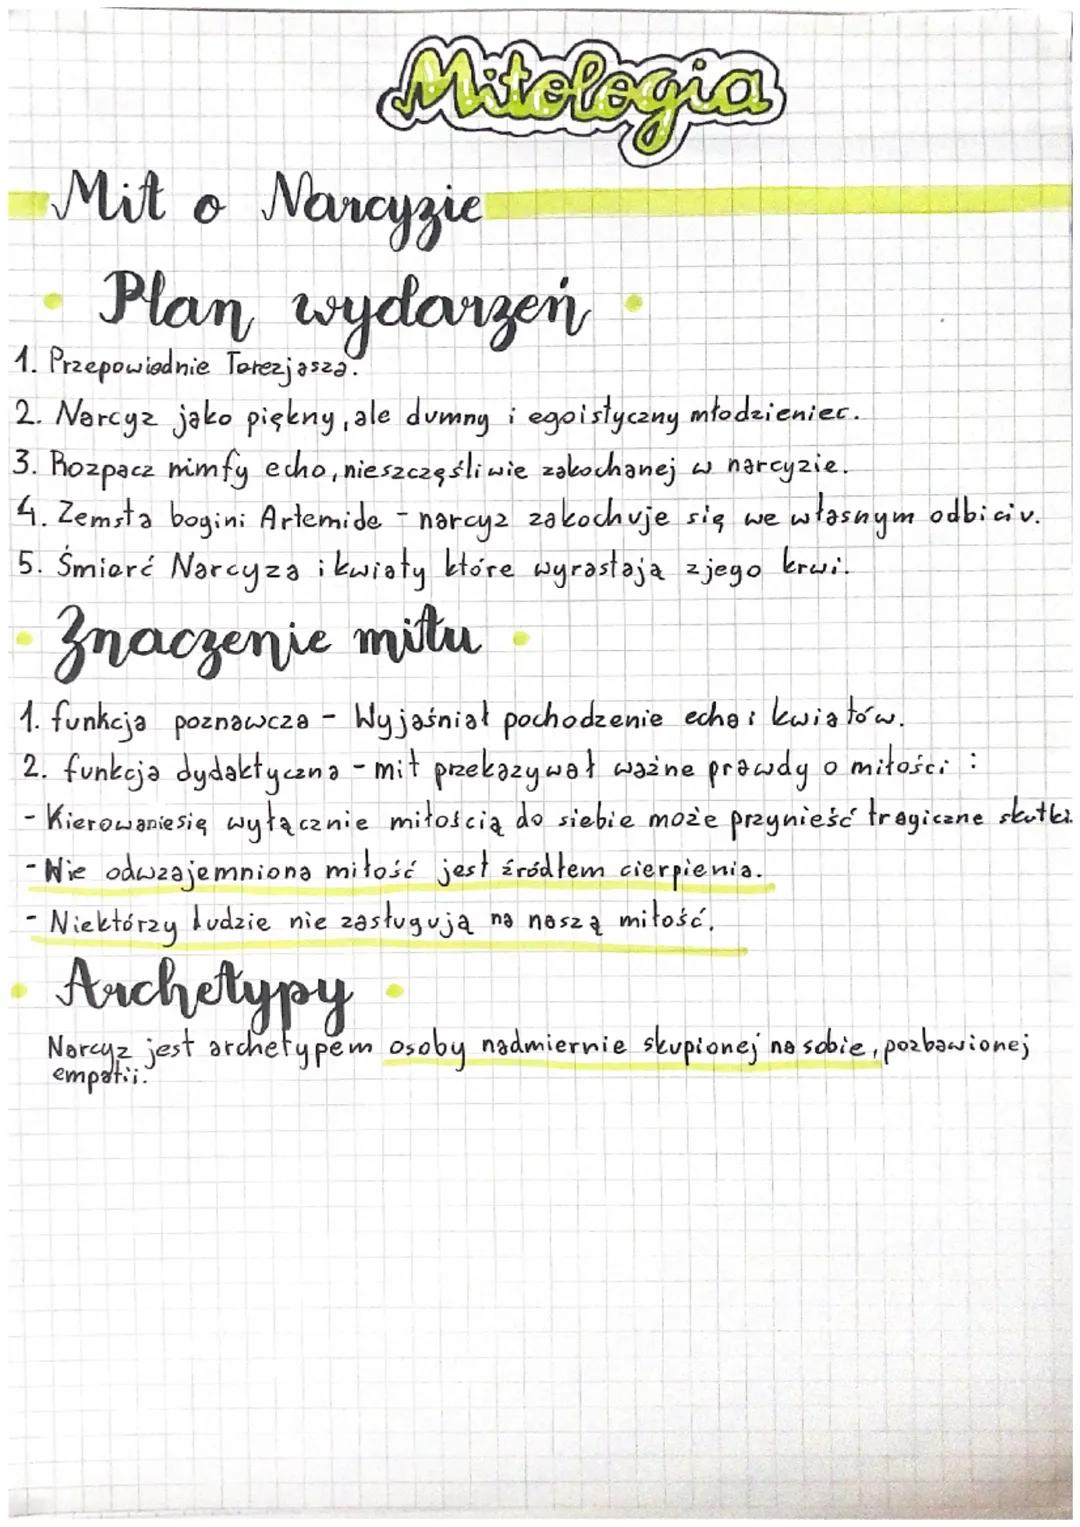 Mitologia
Mit o Narcyzie
Plan wydarzeń
1. Przepowiednie Terezjasza.
2. Narcyz jako piękny, ale dumny i egoistyczny młodzieniec.
3. Rozpacz nimfy echo, nieszczęśliwie zakochanej w narcyzie.
4. Zemsta bogini Artemide - narcyz zakochuje się we własnym odbiciu.
5. Śmierć Narcyza i kwiaty które wyrastają z jego krwi.
Znaczenie mitu
1. funkcja poznawcza - Wyjaśniał pochodzenie echa i kwiatów.
2. funkcja dydaktyczna - mit przekazywał ważne prawdy o miłości :
- Kierowanie się wyłącznie miłością do siebie może przynieść tragiczne skutki.
- Nie odwzajemniona miłość jest źródłem cierpienia.
- Niektórzy ludzie nie zasługują na naszą miłość.
Archetypy
Narcyz jest archetypem osoby nadmiernie skupionej na sobie, pozbawionej
empatii.